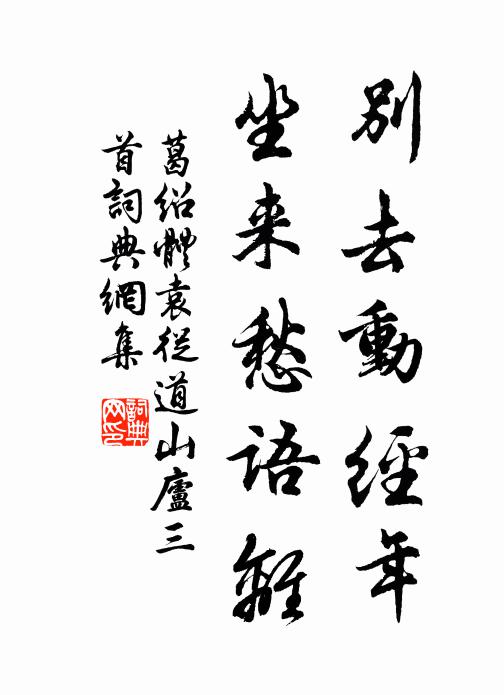 別去動經年
坐來愁語離
葛紹體袁從道山廬三
首詞典網集
詞典网印